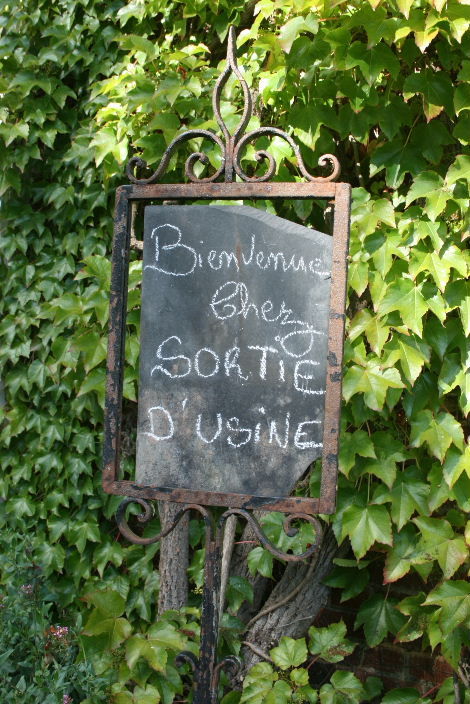 Bienvenue
Chez
SORTIE
D'USINE